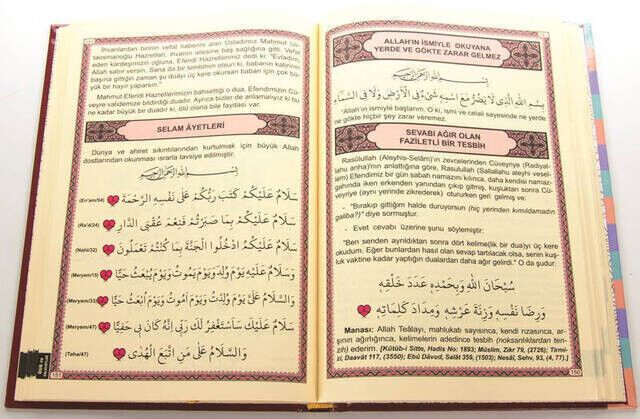 İhvanlardan birinin vefat haberini alan Üstadımız Mahmut Us-
taosmanoğlu Hazretleri, ihvanın ailesine baş sağlığına gitti. Vefat
eden kardeşimizin oğluna, Efendi Hazretlerimiz dedi ki: "Evladım,
Allah sabır versin. Sana da bir tembihim olsun ki, babanın kabrinin
başına gittiğin zaman şu duayı üç kere okursan baban için çok bü-
yük bir hayır yaparsın."
Mahmut Efendi Hazretlerimizin bahsettiği o dua, Efendimizin Cü-
veyre validemize bildirdiği duadır. Ayrıca bizler de anlamalıyız ki bu
ne kadar büyük bir duadır ki, ölü olana bile faydası var.
SELAM ÂYETLERİ
Dünya ve ahiret sıkıntılarından kurtulmak için büyük Allah
dostlarından okunması ısrarla tavsiye edilmiştir.
بِسْمِ اللّٰهِ الرَّحْمٰنِ الرَّحِيمِ
(En'am/54) سَلَامٌ عَلَيْكُمْ كَتَبَ رَبُّكُمْ عَلٰى نَفْسِهِ الرَّحْمَةَ
(Ra'd/24) سَلَامٌ عَلَيْكُمْ بِمَا صَبَرْتُمْ فَنِعْمَ عُقْبَى الدَّارِ
(Nahl/32) سَلَامٌ عَلَيْكُمُ ادْخُلُوا الْجَنَّةَ بِمَا كُنْتُمْ تَعْمَلُونَ
(Meryem/15) وَسَلَامٌ عَلَيْهِ يَوْمَ وُلِدَ وَيَوْمَ يَمُوتُ وَيَوْمَ يُبْعَثُ حَيًّا
(Meryem/33) وَالسَّلَامُ عَلَيَّ يَوْمَ وُلِدْتُ وَيَوْمَ اَمُوتُ وَيَوْمَ اُبْعَثُ حَيًّا
(Meryem/47) سَلَامٌ عَلَيْكَ سَاَسْتَغْفِرُ لَكَ رَبِّي اِنَّهُ كَانَ بِي حَفِيًّا
(Taha/47) وَالسَّلَامُ عَلٰى مَنِ اتَّبَعَ الْهُدٰى
151
ALLAH'IN ISMIYLE OKUYANA
YERDE VE GÖKTE ZARAR GELMEZ
بِسْمِ اللّٰهِ الرَّحْمٰنِ الرَّحِيمِ
بِسْمِ اللّٰهِ الَّذِي لَا يَضُرُّ مَعَ اسْمِهِ شَيْءٌ فِي الْاَرْضِ وَلَا فِي السَّمَاءِ
"Allah'ın ismiyle başlarım. O ki, ismi ve celali sayesinde ne yerde
ne gökte hiçbir şey zarar veremez.
SEVABI AĞIR OLAN
FAZİLETLİ BİR TESBİH
Rasülullah (Aleyhis-Selâm)'ın zevcelerinden Cüveyriye (Radıyal-
lahu anha)'nın anlattığına göre, Rasulullah (Sallallahu aleyhi vesel-
lem) Efendimiz bir gün sabah namazını kılınca, daha kendisi namaz-
gahında iken erkenden yanından çıkıp gitmiş, kuşluktan sonra Cü-
veyriye (aynı yerinde zikrederek) otururken geri gelmiş ve:
- "Bırakıp gittiğim halde duruyorsun (hiç yerinden kımıldamadın
galiba?)" diye sormuştur.
- Evet cevabı üzerine şunu söylemiştir:
"Ben senden ayrıldıktan sonra dört kelime(lik bir dua)yı üç kere
okudum. Eğer bunlardan hasıl olan sevap tartılacak olsa, senin kuş-
luk vaktine kadar yaptığın dualardan daha ağır gelirdi." O da şudur:
سُبْحَانَ اللّٰهِ وَبِحَمْدِهِ عَدَدَ خَلْقِهِ
وَرِضَا نَفْسِهِ وَزِنَةَ عَرْشِهِ وَمِدَادَ كَلِمَاتِهِ
Manası: Allah Teâlayı, mahlukatı sayısınca, kendi rızasınca, ar-
şının ağırlığınca, kelimelerin adedince tesbih (noksanlıklardan ten-
zih) ederim. [Kütüb-i Sitte, Hadis No: 1893; Müslim, Zikr 79, (2726); Tirmi-
zi, Daavât 117, (3550); Ebû Dâvud, Salât 359, (1503); Nesâî, Sehv, 93, (4, 77).]
150